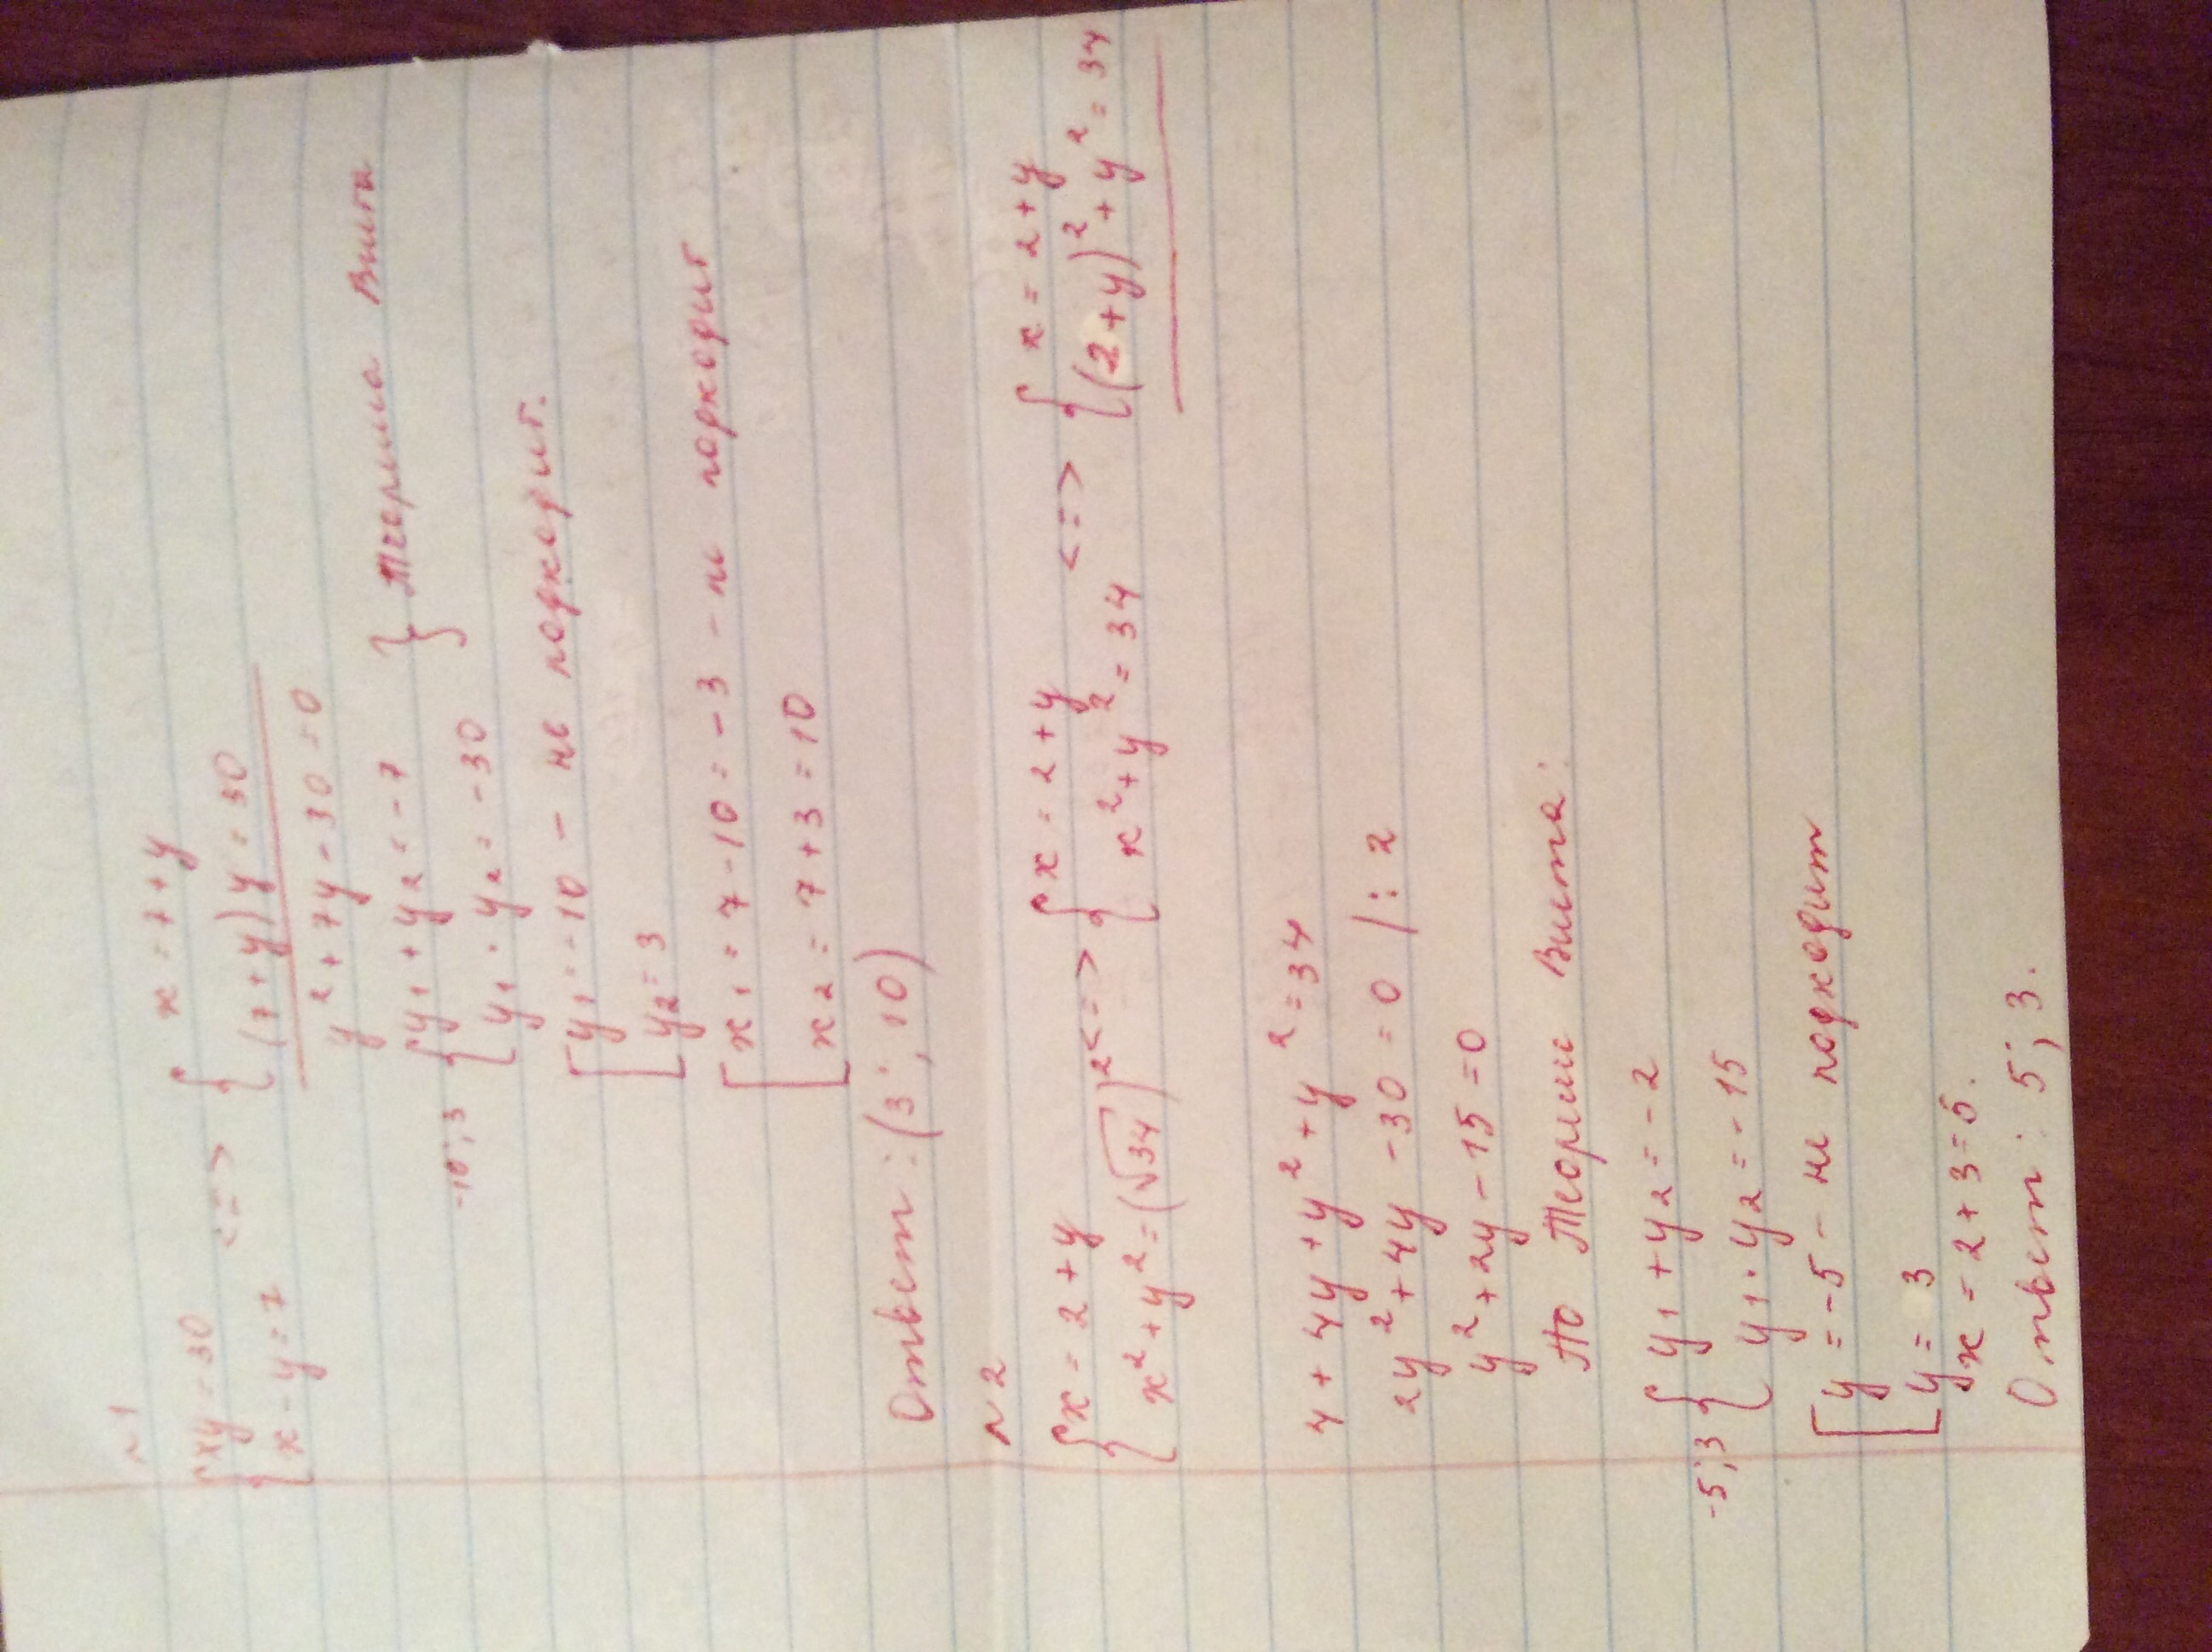 N1
{xy = 30
{x - y = 7 <=> {x = 7 + y
{(7 + y) y = 30
y² + 7y - 30 = 0
-10; 3 {y₁ + y₂ = -7
{y₁ · y₂ = -30 } теорема Виета
[y₁ = -10 - не подходит.
[y₂ = 3
[x₁ = 7 - 10 = -3 - не подходит
[x₂ = 7 + 3 = 10
Ответ: (3; 10)
N2
{x = 2 + y
{x² + y² = (√34)² <=> {x = 2 + y
{x² + y² = 34 <=> {x = 2 + y
{(2 + y)² + y² = 34
4 + 4y + y² + y² = 34
2y² + 4y - 30 = 0 /: 2
y² + 2y - 15 = 0
По Теореме Виета:
-5; 3 {y₁ + y₂ = -2
{y₁ · y₂ = -15
[y = -5 - не подходит
[y = 3
x = 2 + 3 = 5.
Ответ: 5; 3.